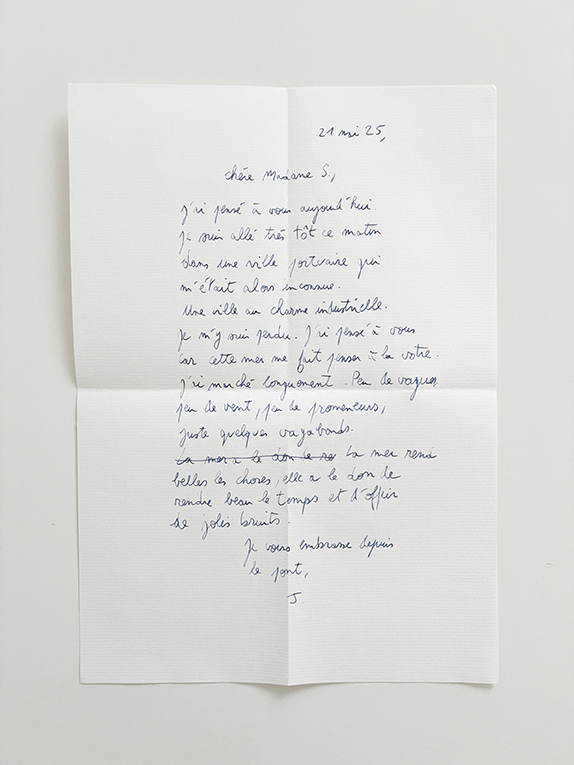 21 mai 25,
Chère Madame S.,
J'ai pensé à vous aujourd'hui
Je suis allé très tôt ce matin
dans une ville portuaire qui
m'était alors inconnue.
Une ville au charme industrielle.
Je m'y suis perdu. J'ai pensé à vous
car cette mer me fait penser à la votre.
J'ai marché longuement. Peu de vagues
peu de vent, peu de promeneurs,
juste quelques vagabonds.
La mer a le don de re La mer rend
belles les choses, elle a le don de
rendre beau le temps et d'offrir
de jolis bruits.
Je vous embrasse depuis
le pont,
J.